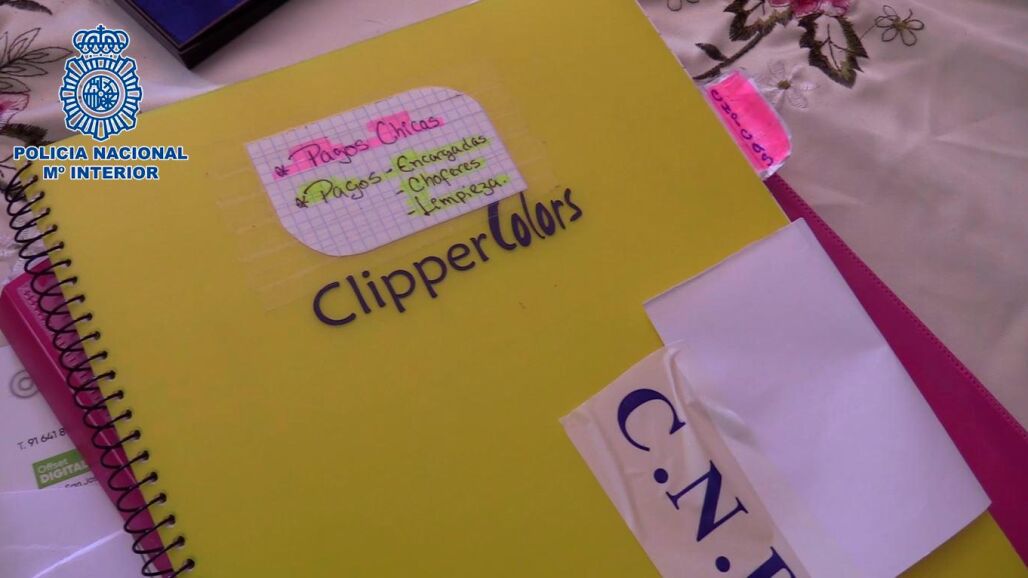 POLICIA NACIONAL
Mº INTERIOR
* Pagos Chicas
* Pagos - Encargadas
Choferes
- Limpieza.
Clipper Colors
CHICAS
C.N.
T. 91 641 8
Offset
DIGITAL
San Jo